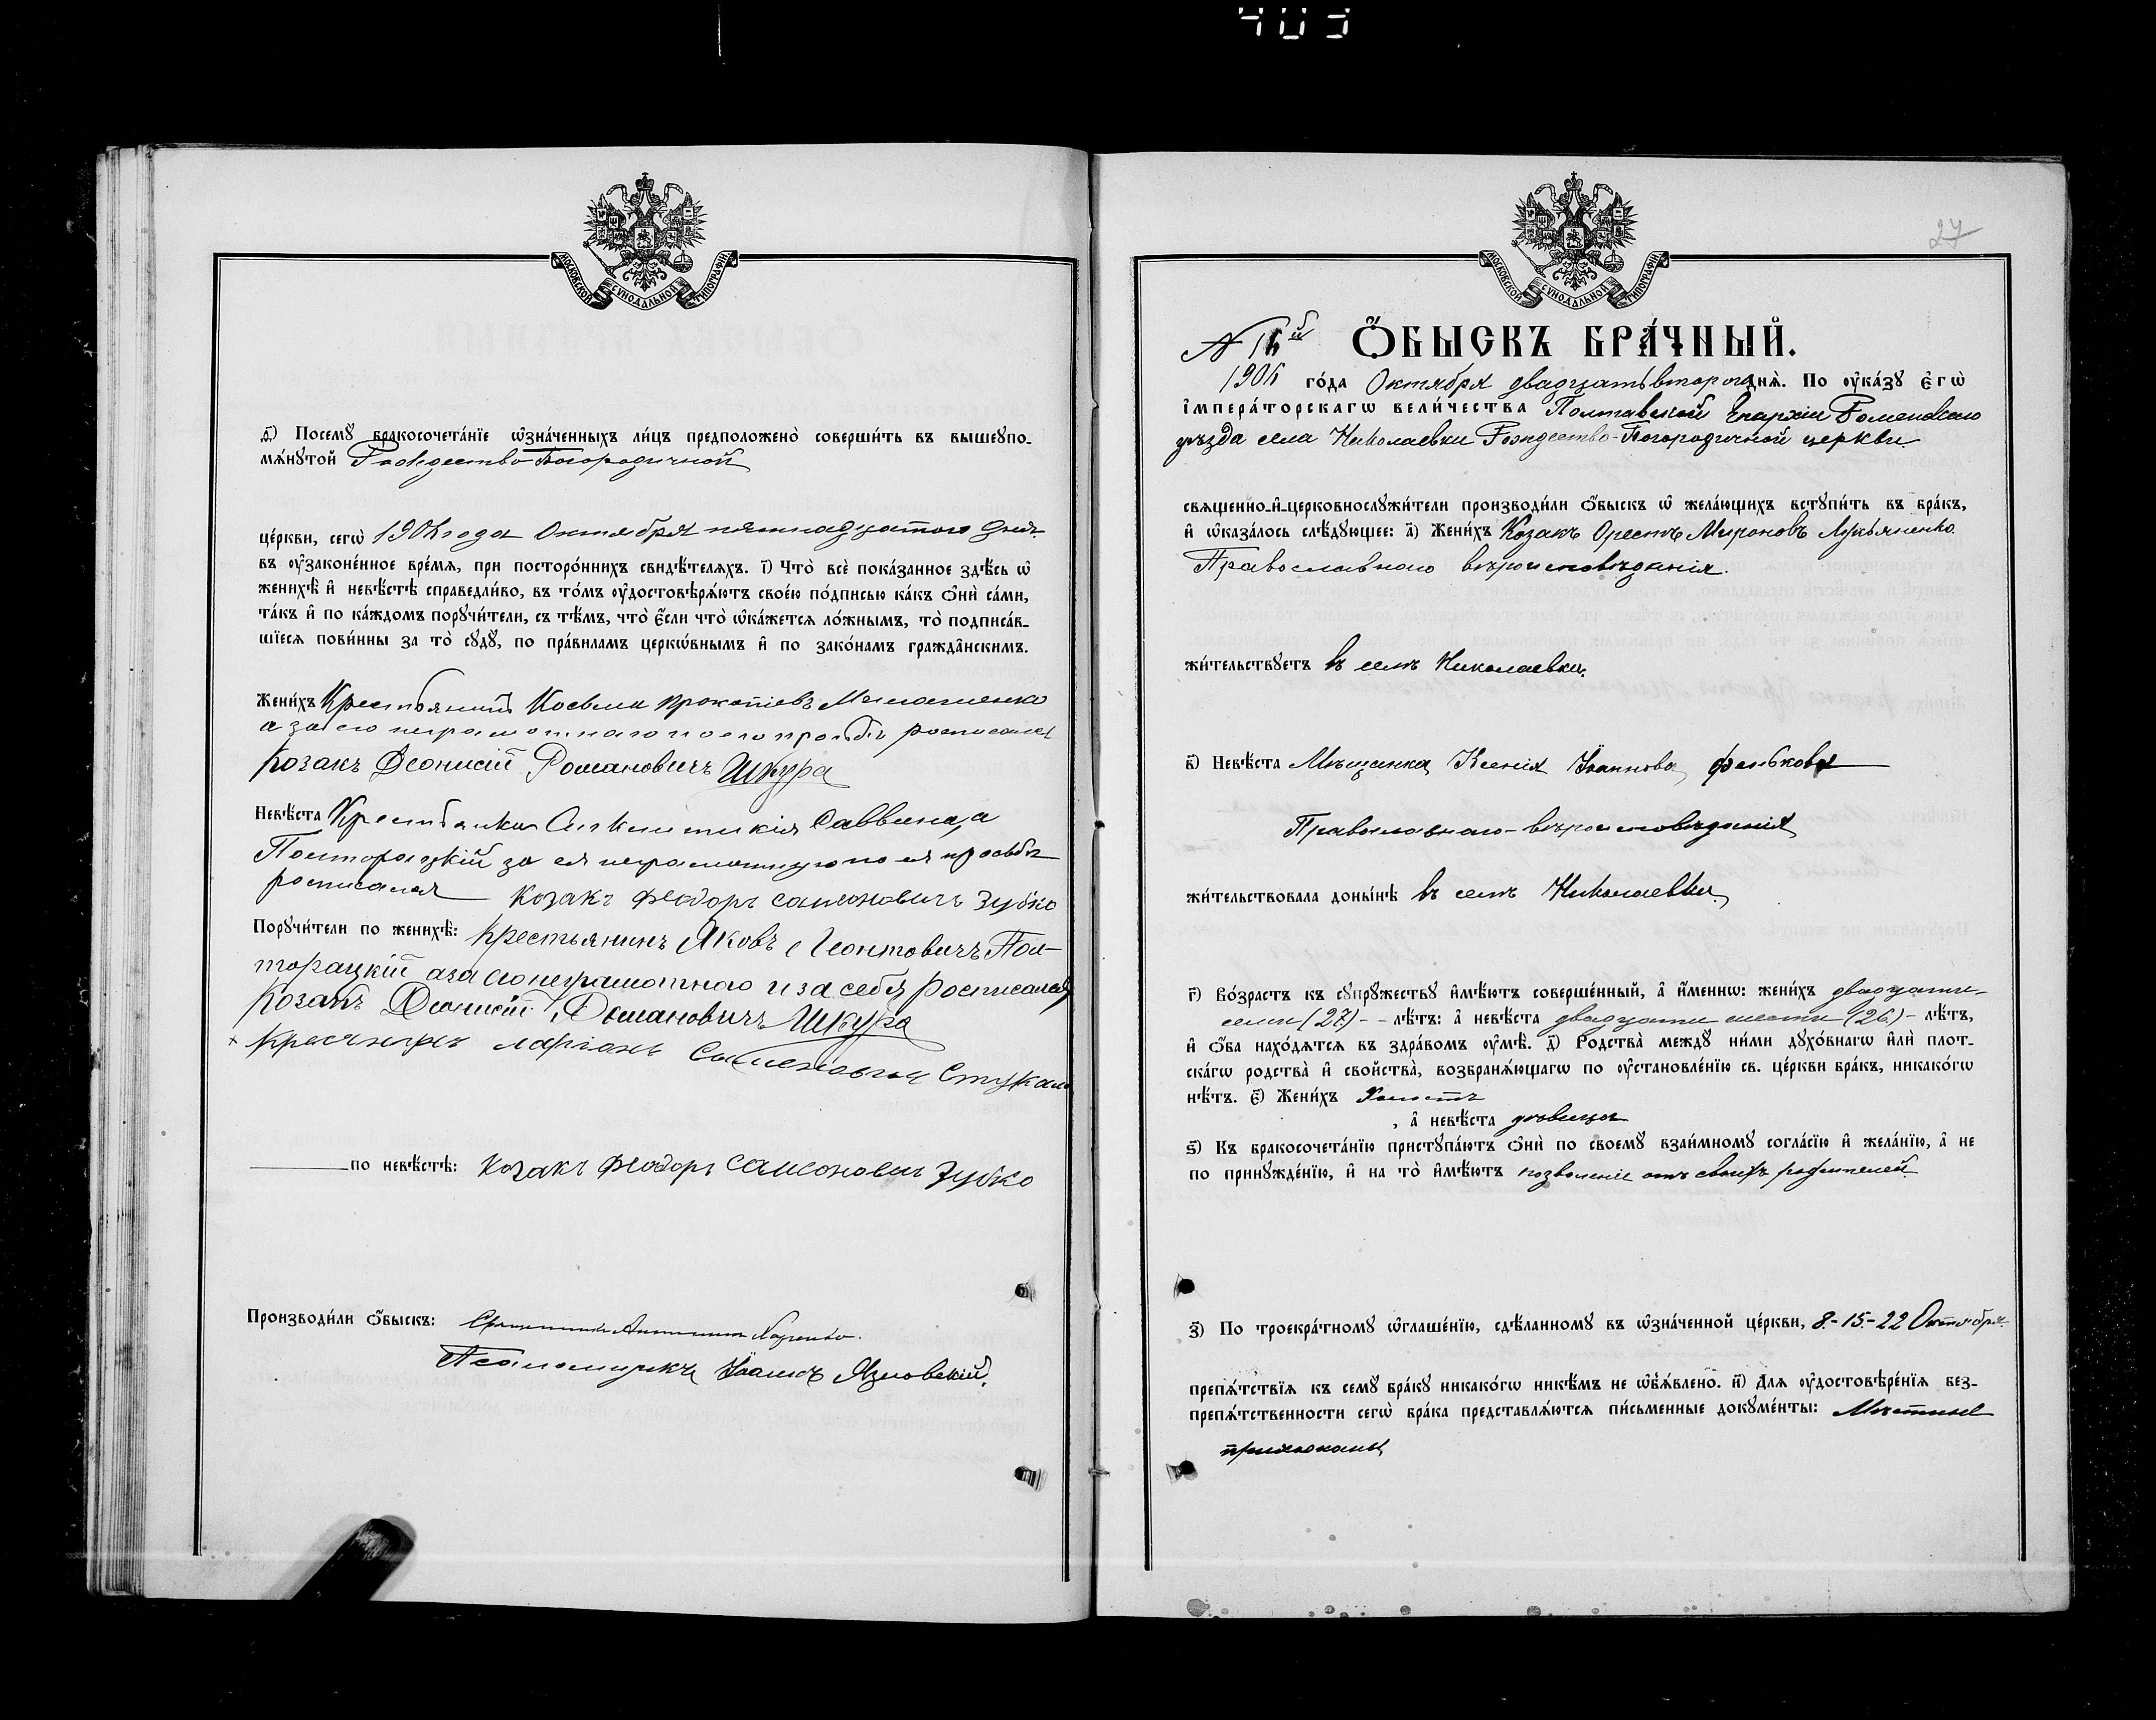 МОСКОВСКОЙ СѴНОДАЛЬНОЙ ТИПОГРАФІИ
ѳ҃) Посемꙋ бракосочета́нїе ѡ҆зна́ченныхъ ли́цъ предположено̀ соверши́ть въ вышеупо-
мѧ́нꙋтой Рождество-Богородичной
це́ркви, сегѡ̀ 190 года Октября пятнадцатого дня
въ ᲂу҆зако́ненное вре́мѧ, при посторо́ннихъ свидѣ́телѧхъ. і҃) Что̀ всѐ пока́занное здѣ́сь ѡ҆
женихѣ̀ и҆ невѣ́стѣ справедли́во, въ то́мъ ᲂу҆достовѣрѧ́ютъ свое́ю по́дписью ка́къ ѻ҆нѝ са́ми,
та́къ и҆ по ка́ждомъ порꙋчи́тели, съ тѣ́мъ, что̀ є҆́сли что̀ ѡ҆ка́жетсѧ ло́жнымъ, то̀ подписа́в-
шїесѧ пови́нны за то̀ сꙋдꙋ̀, по пра́виламъ церко́внымъ и҆ по зако́намъ гражда̑нскимъ.
Жени́хъ Крестьянинъ Косьма Прокопіевъ
а за его неграмотнаго по его прозьбѣ росписался
Козакъ Деонисій Романовичъ Шкура
Невѣ́ста Крестьянка Саввина, а
Полторацкій за ея неграмотную по ея просьбѣ
росписался Козакъ Феодоръ Самсоновичъ Зубко
Порꙋчи́тели по женихѣ̀: Крестьянинъ Яковъ Леонтовичъ Пол-
торацкій а за его неграмотного и за себя росписался
Козакъ Деонисій Романовичъ Шкура
по невѣ́стѣ: Козакъ Феодоръ Самсоновичъ Зубко
Производи́ли ѻ҆́быскъ: Священникъ
Псаломщикъ Іоаннъ
27
МОСКОВСКОЙ СѴНОДАЛЬНОЙ ТИПОГРАФІИ
Ѻ҆́БЫСКЪ БРА́ЧНЫЙ.
190 го́да Октября двадцать второго днѧ̀. По ᲂу҆ка́зꙋ є҆гѡ̀
і҆мпера́торскагѡ вели́чества Полтавской Епархіи Роменскаго
уѣзда села Николаевки Рождество-Богородичной церкви
свѧщенно-и҆-церковнослꙋжи́тели производи́ли ѻ҆́быскъ ѡ҆ жела́ющихъ встꙋпи́ть въ бра́къ,
и҆ ѡ҆каза́лось слѣ́дꙋющее: а҃) Жени́хъ Козакъ Орестъ Мироновъ Лукьяненко
Православнаго вѣроисповѣданія.
жи́тельствꙋетъ въ селѣ Николаевки.
в҃) Невѣ́ста Мѣщанка Ксенія Іоаннова Фенькова
Православнаго вѣроисповѣданія
жи́тельствовала доны́нѣ въ селѣ Николаевки.
г҃) Во́зрастъ къ сꙋпрꙋ́жествꙋ и҆мѣ́ютъ соверше́нный, а҆ и҆́менно: жени́хъ двадцати-
семи (27.) - лѣ́тъ: а҆ невѣ́ста двадцати шести (26.) - лѣ́тъ,
и҆ ѻ҆́ба нахо́дѧтсѧ въ здра́вомъ ᲂу҆мѣ̀. д҃) Родства̀ междꙋ̀ ни́ми дꙋхо́внагѡ и҆лѝ плот-
ска́гѡ родства̀ и҆ сво́йства, возбранѧ́ющагѡ по ᲂу҆становле́нїю св. це́ркви бра́къ, никако́гѡ
нѣ́тъ. є҃) Жени́хъ Холостъ
, а҆ невѣ́ста дѣвица
ѕ҃) Къ бракосочета́нїю пристꙋпа́ютъ ѻ҆нѝ по своемꙋ̀ взаи́мномꙋ согла́сїю и҆ жела́нїю, а҆ не
по принꙋжде́нїю, и҆ на то̀ и҆мѣ́ютъ позволеніе отъ своихъ родителей.
з҃) По троекра́тномꙋ ѡ҆глаше́нїю, сдѣ́ланномꙋ въ ѡ҆зна́ченной це́ркви, 8.-15-22 Октября
препѧ́тствїѧ къ семꙋ̀ бра́кꙋ никако́гѡ никѣ́мъ не ѡ҆б̾ѧ́влено. и҃) Длѧ ᲂу҆достовѣре́нїѧ без-
препѧ́тственности сегѡ̀ бра́ка представлѧ́ютсѧ пи́сьменные докꙋме́нты: Мѣстные
прихожаны